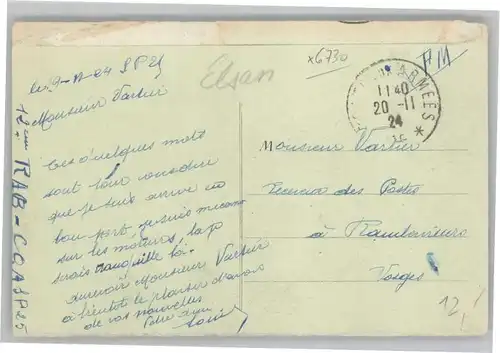 le 19-11-24 S P 25
Monsieur Vartier
Ces quelques mots
sont pour vous dire
que je suis arrivé en
bon port, je suis mécano
sur les moteurs, la
serais tranquille là.
aurevoir Monsieur Vartier
à bientôt le plaisir d'avoir
de vos nouvelles
Votre ami
Louis
12em RAB - COA SP25
Elsan
x6730
FM
ARMÉES *
1140
20 - 11
24
Monsieur Vartier
Receveur des Postes
à Rambervillers
Vosges
12,-